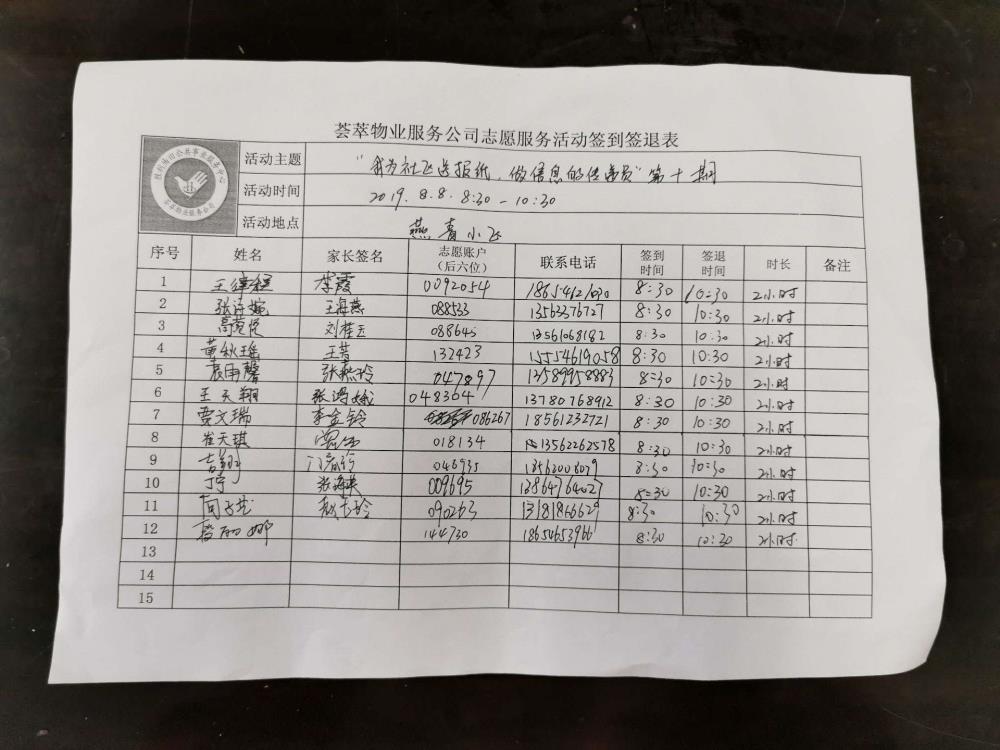 荟萃物业服务公司志愿服务活动签到签退表
活动主题 "我为社区送报纸,做信息的传递员"第十期
活动时间 2019.8.8. 8:30-10:30
活动地点 燕青小区
序号 姓名 家长签名 志愿账户(后六位) 联系电话 签到时间 签退时间 时长 备注
1 李霞 0092054 8:30 10:30 2小时
2 王海燕 088533 13563276727 8:30 10:30 2小时
3 刘桂玉 088645 13561068182 8:30 10:30 2小时
4 黄秋瑶 王昔 132423 15554619058 8:30 10:30 2小时
5 袁雨馨 047897 13589958883 8:30 10:30 2小时
6 王天翔 张鸿娥 048364 13780768912 8:30 10:30 2小时
7 贾文瑞 李金铃 086267 18561232721 8:30 10:30 2小时
8 崔天琪 018134 13562262578 8:30 10:30 2小时
9 吉翔 046935 8:30 10:30 2小时
10 丁宁 张海英 009695 13864764027 8:30 10:30 2小时
11 090263 8:30 10:30 2小时
12 144730 18654653966 8:30 10:30 2小时
13
14
15